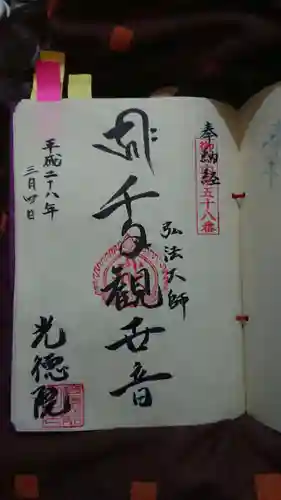 奉納経
五十八番
弘法大師
千手観世音
光徳院
平成二十八年
三月四日